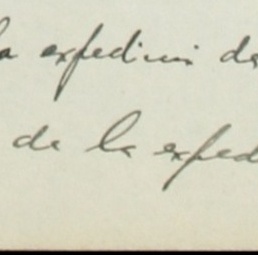 la expedición de
de la exped